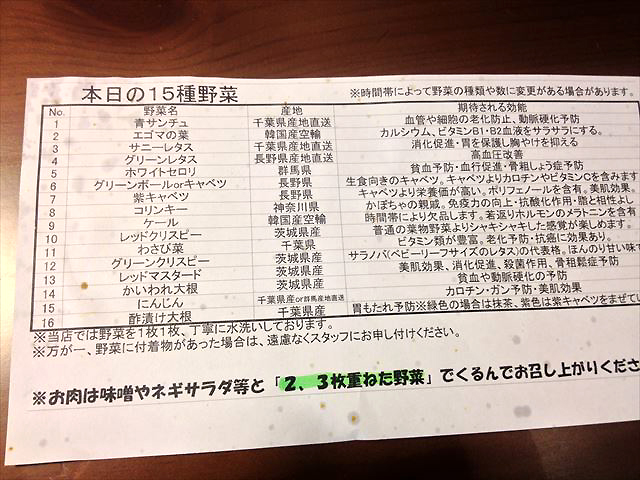 本日の15種野菜 ※時間帯によって野菜の種類や数に変更がある場合があります。
No. 野菜名 産地 期待される効能
1 青サンチュ 千葉県産地直送 血管や細胞の老化防止、動脈硬化予防
2 エゴマの葉 韓国産空輸 カルシウム、ビタミンB1・B2血液をサラサラにする。
3 サニーレタス 千葉県産地直送 消化促進・胃を保護し胸やけを抑える
4 グリーンレタス 長野県産地直送 高血圧改善
5 ホワイトセロリ 群馬県 貧血予防・血行促進・骨粗しょう症予防
6 グリーンボールorキャベツ 長野県 生食向きのキャベツ。キャベツよりカロテンやビタミンCを含みます
7 紫キャベツ 長野県 キャベツより栄養価が高い。ポリフェノールを含有。美肌効果。
8 コリンキー 神奈川県 かぼちゃの親戚。免疫力の向上・抗酸化作用・脂と相性よし
9 ケール 韓国産空輸 時間帯により欠品します。若返りホルモンのメラトニンを含有
10 レッドクリスピー 茨城県産 普通の葉物野菜よりシャキシャキした感覚が楽しめます。
11 わさび菜 千葉県 ビタミン類が豊富。老化予防・抗癌に効果あり。
12 グリーンクリスピー 茨城県産 サラノバ(ベビーリーフサイズのレタス)の代表格。ほんのり甘い味で
13 レッドマスタード 茨城県産 美肌効果、消化促進、殺菌作用、骨粗鬆症予防
14 かいわれ大根 茨城県産 貧血や動脈硬化の予防
15 にんじん 千葉県産or群馬県産地直送 カロチン・ガン予防・美肌効果
16 酢漬け大根 千葉県産 胃もたれ予防※緑色の場合は抹茶、紫色は紫キャベツをまぜてい
※当店では野菜を1枚1枚、丁寧に水洗いしております。
※万が一、野菜に付着物があった場合は、遠慮なくスタッフにお申し付けください。
※お肉は味噌やネギサラダ等と「2、3枚重ねた野菜」でくるんでお召し上がりくださ